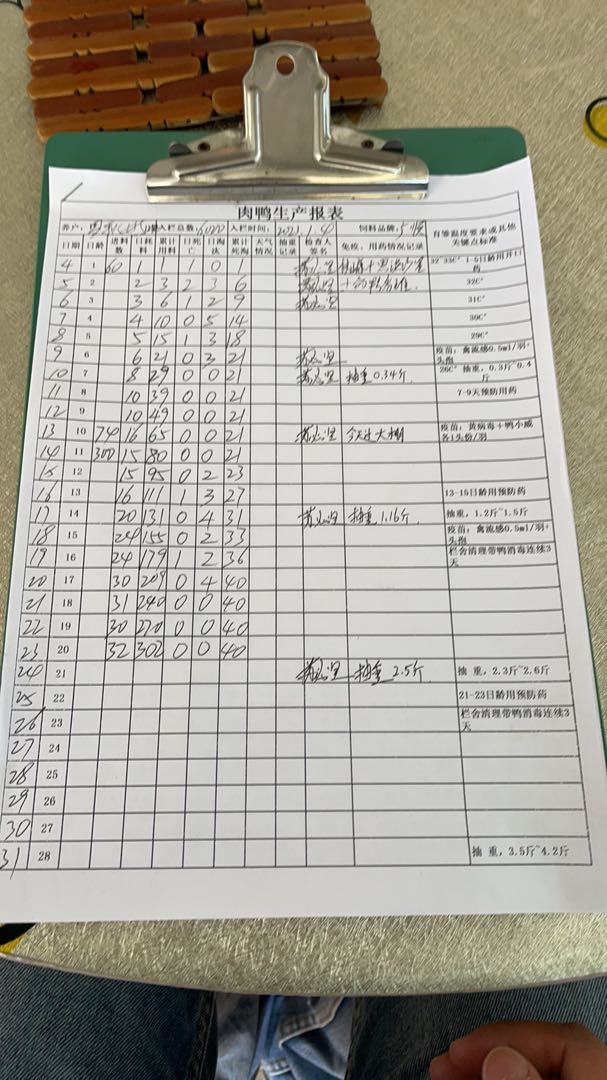 肉鸭生产报表
养户: 入栏总数: 入栏时间: 2021.1.4 饲料品牌:
日期 日龄 进料数 日耗料 累计用料 日死亡 日淘汰 累计死淘 天气情况 抽重记录 检查人签名 免疫、用药情况记录 育雏温度要求或其他关键点标准
4 1 60 1 1 1 0 1 32~33C° 1-5日龄用开口药
5 2 2 3 2 3 6 32C°
6 3 3 6 1 2 9 31C°
7 4 4 10 0 5 14 30C°
8 5 5 15 1 3 18 29C°
9 6 6 21 0 3 21 疫苗：禽流感0.5ml/羽+头孢
10 7 8 29 0 0 21 抽重0.34斤 26C° 抽重，0.3斤~0.4斤
11 8 10 39 0 0 21 7-9天预防用药
12 9 10 49 0 0 21
13 10 74 16 65 0 0 21 今天过大棚 疫苗：黄病毒+鸭小威各1头份/羽
14 11 300 15 80 0 0 21
15 12 15 95 0 2 23
16 13 16 111 1 3 27 13-15日龄用预防药
17 14 20 131 0 4 31 抽重1.16斤 抽重，1.2斤~1.5斤
18 15 24 155 0 2 33 疫苗：禽流感0.5ml/羽+头孢
19 16 24 179 1 2 36 栏舍清理带鸭消毒连续3天
20 17 30 209 0 4 40
21 18 31 240 0 0 40
22 19 30 270 0 0 40
23 20 32 302 0 0 40
24 21 抽重 2.5斤 抽 重，2.3斤~2.6斤
25 22 21-23日龄用预防药
26 23 栏舍清理带鸭消毒连续3天
27 24
28 25
29 26
30 27
31 28 抽 重，3.5斤~4.2斤